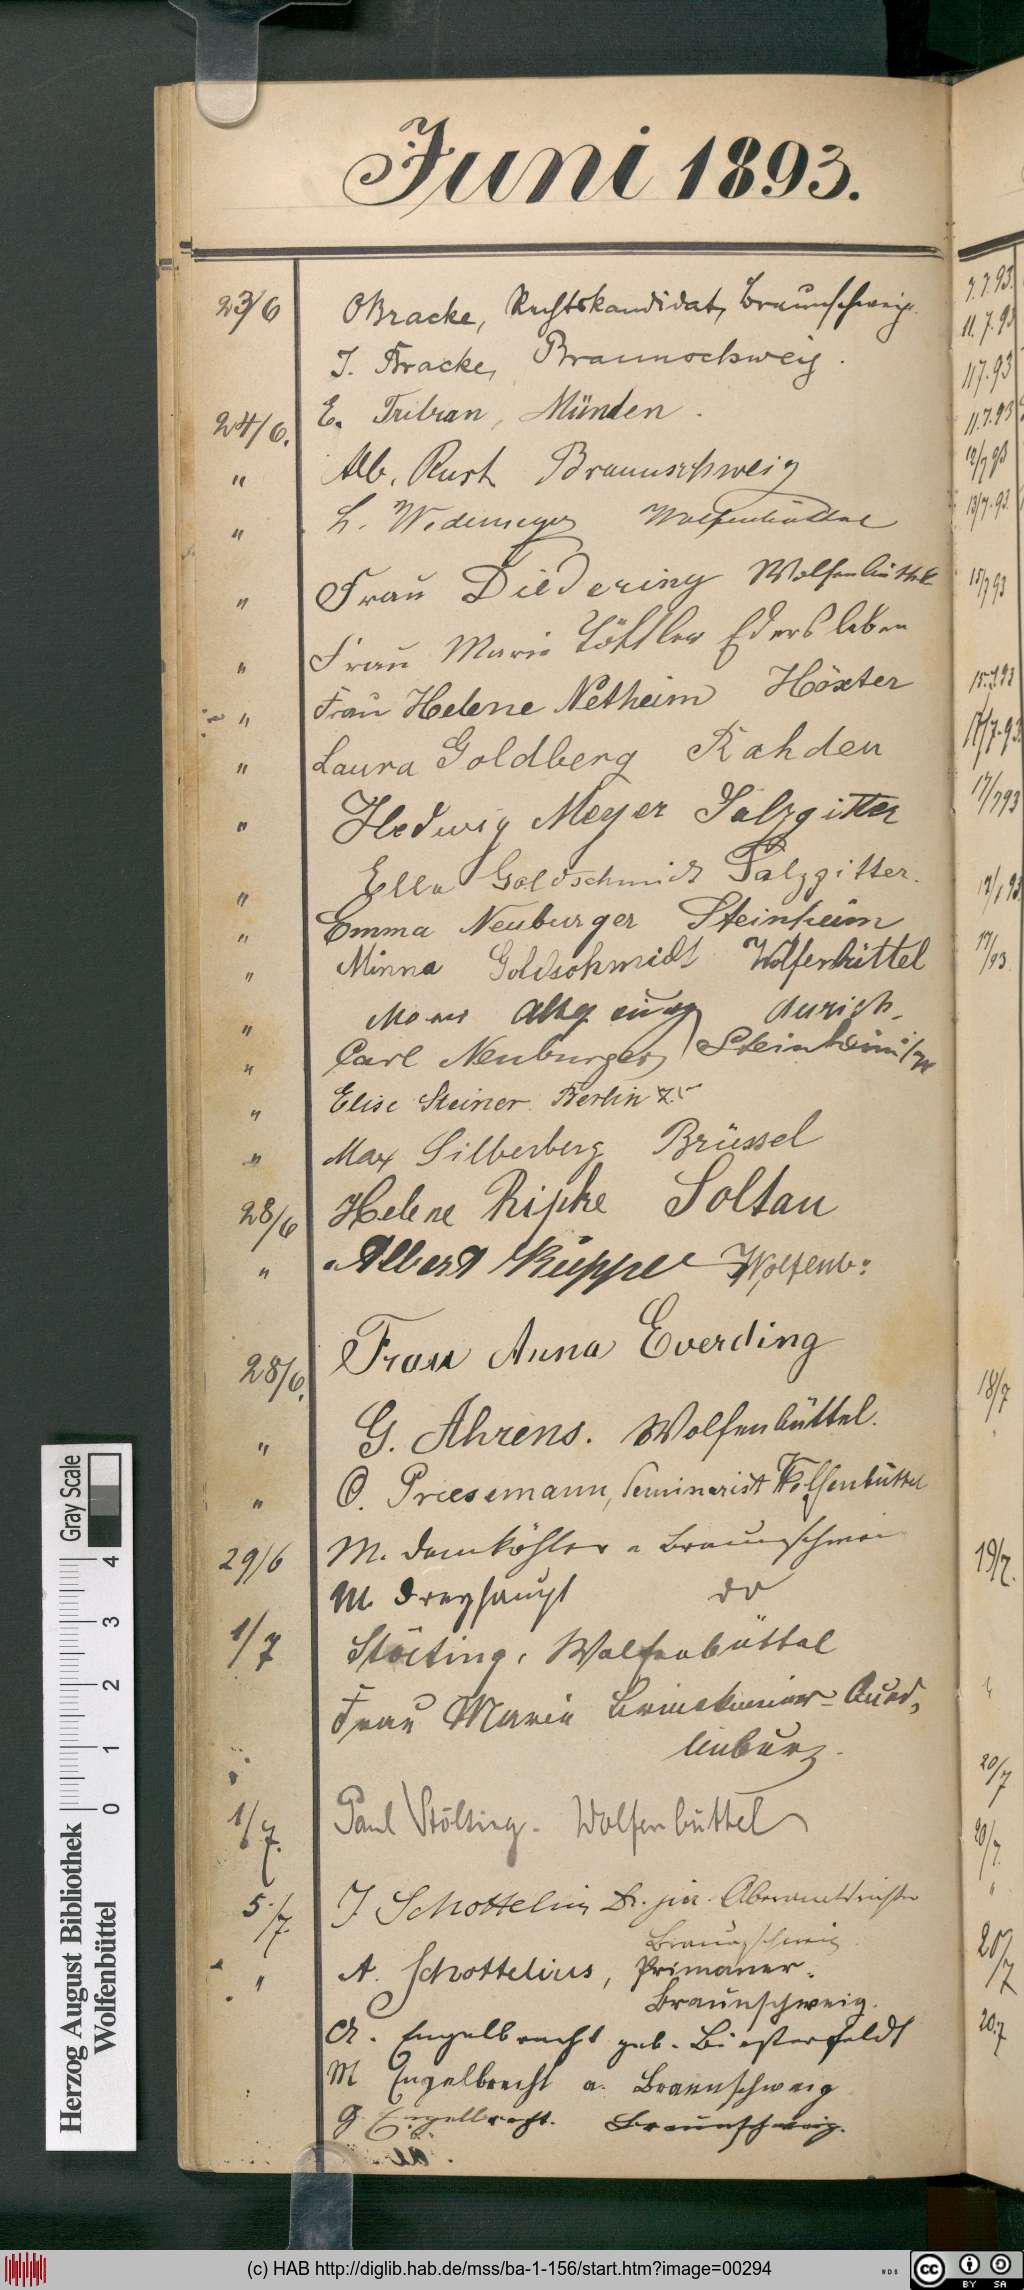 Juni 1893.
23/6 O Bracke, Rechtskandidat, Braunschweig.
J. Bracke, Braunschweig.
24/6. E. Tribian, Münden.
" Alb. Rust Braunschweig
" L. Wedemeyer Wolfenbüttel
" Frau Diedering Wolfenbüttel
" Frau Marie Löffler Edersleben
" Frau Helene Netheim Höxter
" Laura Goldberg Rahden
" Hedwig Meyer Salzgitter
" Ella Goldschmidt Salzgitter.
" Emma Neuburger Steinheim
" Minna Goldschmidt Wolfenbüttel
" Aurich.
" Carl Neuburger, Steinheim i/W
" Elise Steiner Berlin
" Max Silberberg Brüssel
28/6 Helene Ripke Soltau
" Albert Küppe Wolfenb:
28/6. Frau Anna Everding
" G. Ahrens. Wolfenbüttel.
" O. Priesemann, Seminarist Wolfenbüttel
29/6 M. Damköhler a Braunschwei
M. Dreyhaupt do
1/7 Stölting, Wolfenbüttel
Frau Marie Qued-
linburg.
1/7. Paul Stölting. Wolfenbüttel
5./7. J. Schottelius Dr. jur. Oberamtsrichter
Braunschweig
" A. Schottelius, Primaner.
Braunschweig.
A. Engelbrecht geb. Biesterfeldt
M Engelbrecht a. Braunschweig
G. Engelbrecht. Braunschweig.
7.7.93.
11.7.93
11 7.93
11.7.93
12/7 93
13/7.93.
15/7 93
15.7.93
17/7.93.
17/7 93
18/7
19/7.
20/7
20/7.
"
20/7
20.7
Herzog August Bibliothek
Wolfenbüttel
0 1 2 3 4
Gray Scale
(c) HAB http://diglib.hab.de/mss/ba-1-156/start.htm?image=00294
cc BY SA